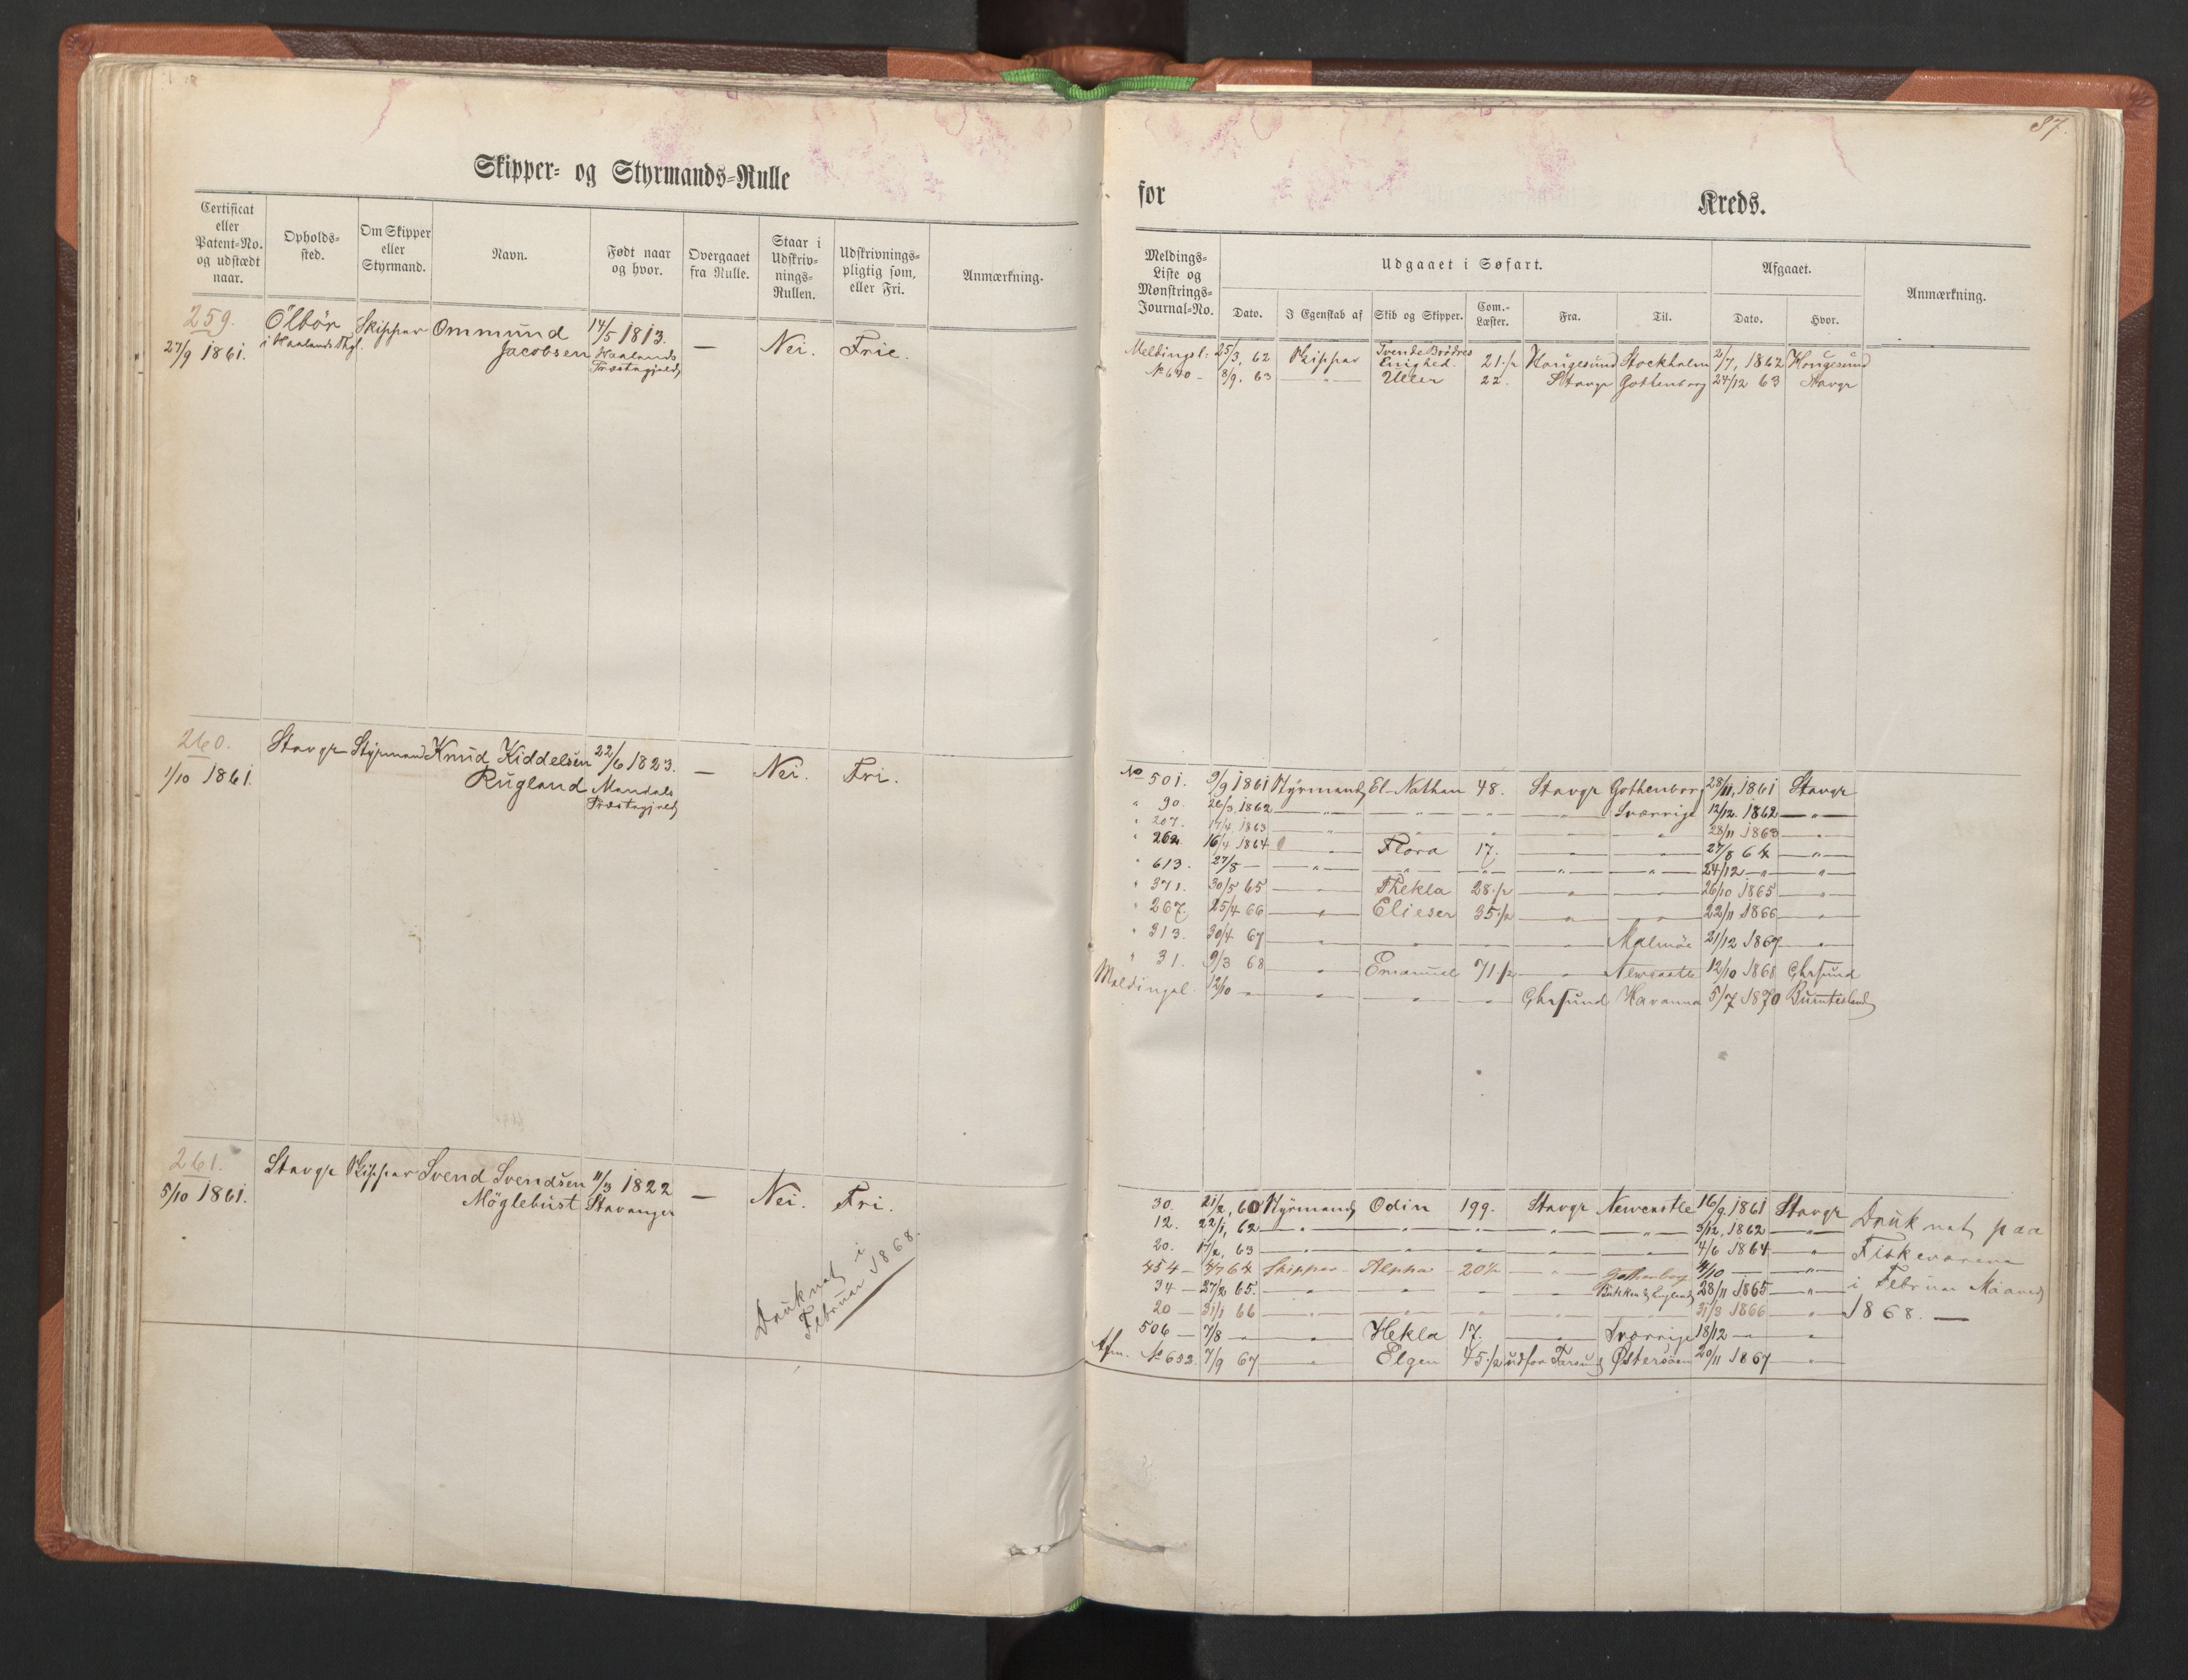 87.
Skipper- og Styrmands-Rulle
for Kreds.
Certificat eller Patent-No. og udstædt naar.
Opholds-sted.
Om Skipper eller Styrmand.
Navn.
Født naar og hvor.
Overgaaet fra Rulle.
Staar i Udskriv-nings-Rullen.
Udskrivnings-pligtig som, eller Fri.
Anmærkning.
Meldings-Liste og Mønstrings-Journal-No.
Udgaaet i Søfart.
Afgaaet.
Anmærkning.
Dato. I Egenskab af Skib og Skipper. Com.-Læster. Fra. Til. Dato. Hvor.
259. Ölbör Skipper Ommund 14/5 1813. — Nei. Frie.
27/9 1861. i Haalands Jacobsen Haalands
Præstegjeld
Meldingsl. 25/3, 62 Skipper Tvende Brødres
Enighed 21 1/2 Haugesund Stockholm 2/7, 1862 Haugesund
No 640 - 8/9, 63 — " — Uller 22. Stavgr Gothenborg 24/12 63 Stavgr
260. Stavgr Styrmand Knud Kiddelsen 22/6 1823. — Nei. Fri.
1/10 1861. Rugland Mandals
Præstegjeld
No 501. 9/9 1861 Styrmand El-Nathan 48. Stavgr Gothenborg 28/11, 1861 Stavgr
" 90. 26/3, 1862 — " — — " — — " — — " — Sværrige 12/12. 1862 — " —
" 207. 17/4, 1863 — " — — " — — " — — " — — " — 28/11 1863 — " —
" 262. 16/4 1864 — " — Flora 17. — " — — " — 27/8 64 — " —
" 613. 27/8 — — " — — " — — " — — " — — " — 24/12 — " — — " —
" 371. 30/5 65 — " — Thekla 28 1/2 — " — — " — 26/10 1865 — " —
" 267. 25/4 66 — " — Elieser 35 1/2 — " — — " — 22/11 1866 — " —
" 313. 30/4 67 — " — — " — — " — — " — Malmöe 21/12 1867 — " —
" 31. 9/3 68 — " — Emanuel 71 1/2 — " — Newcastle 12/10 1868 Ghrsund
Meldingsl. 12/10 — " — " — — " — — " — Ghrsund Havanna 5/7 1870 Burntisland
261. Stavgr Skipper Svend Svendsen 11/3 1822 — Nei. Fri.
5/10 1861. Möglebust Stavanger
Druknet i
Februar 1868.
30. 21/2, 60 Styrmand Odin 199. Stavgr Newcastle 16/9. 1861 Stavgr Druknet paa
12. 22/1, 62 — " — — " — — " — — " — — " — 3/12, 1862 — " —
20. 17/2, 63 — " — — " — — " — — " — — " — 4/6 1864 — " — Fiskevarene
454 — 64 Skipper Alpha 20 1/2 — " — Gothenborg /10 — — " —
34 — 27/2 65. — " — — " — — " — — " — England 28/11 1865 — " — i Februar Maaned
20 — 31/1 66 — " — — " — — " — — " — — " — 31/3 1866 — " — 1868. —
506 — 7/8 — " — " — Hekla 17. — " — Sværrige 18/12 — — " —
Afm. No 652. 7/9 67 — " — Elgen 45 1/2 ud fra Farsund Østersöen 20/11 1867 — " —